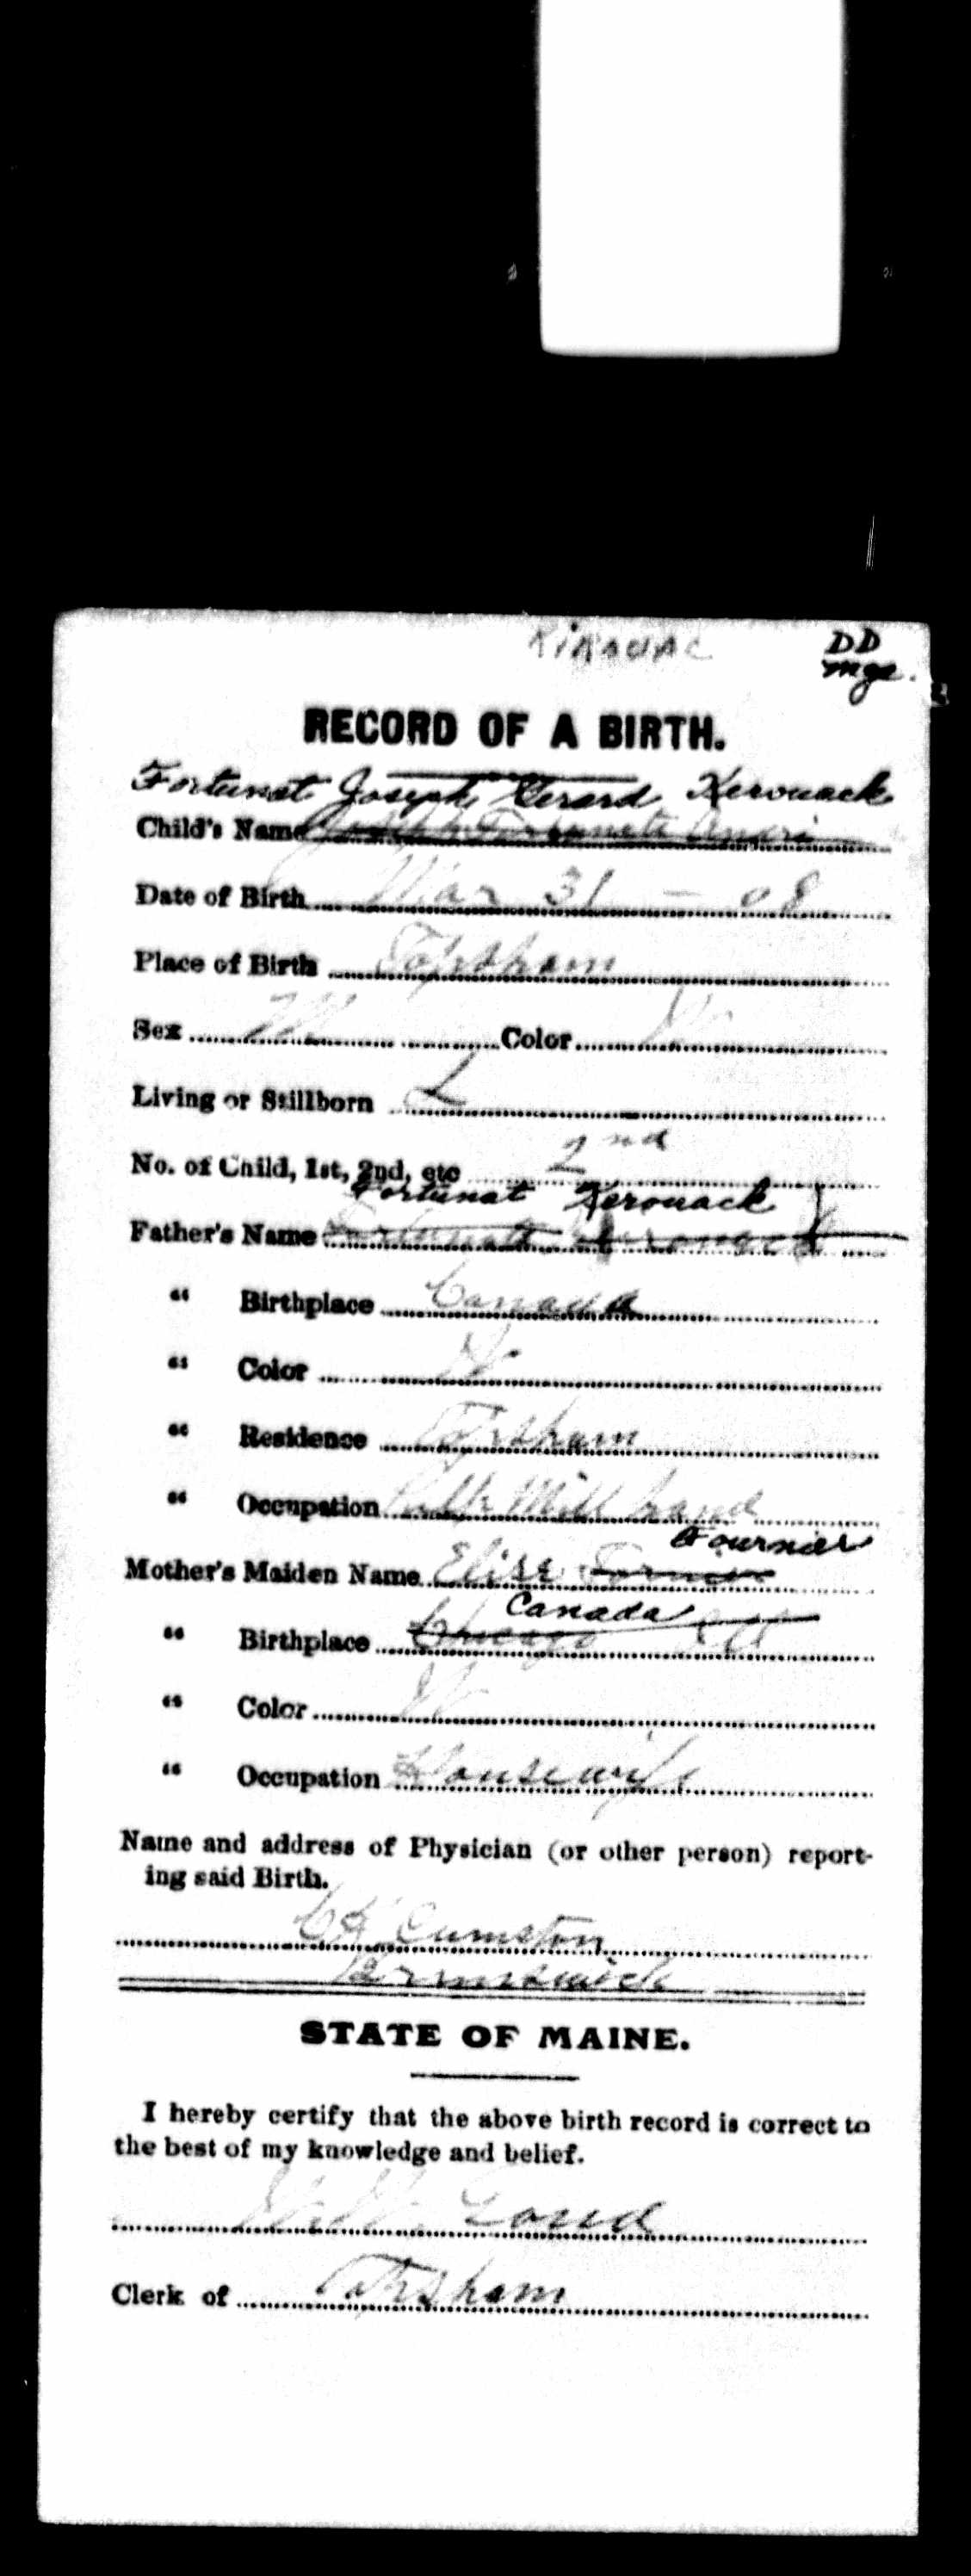 KIROUAC
DD
mge.
RECORD OF A BIRTH.
Fortunat Joseph Gerard Kerouack
Child's Name Joseph Fortunate
Date of Birth Mar 31 - 08
Place of Birth Topsham
Sex M Color W
Living or Stillborn L
No. of Child, 1st, 2nd, etc 2nd
Fortunat Kerouack
Father's Name
" Birthplace Canada
" Color W
" Residence Topsham
" Occupation Pulp Mill hand
Fournier
Mother's Maiden Name Elise
Canada
" Birthplace Chicago Ill
" Color W
" Occupation Housewife
Name and address of Physician (or other person) report-
ing said Birth.
Cumston
Brunswick
STATE OF MAINE.
I hereby certify that the above birth record is correct to
the best of my knowledge and belief.
Loud
Clerk of Topsham